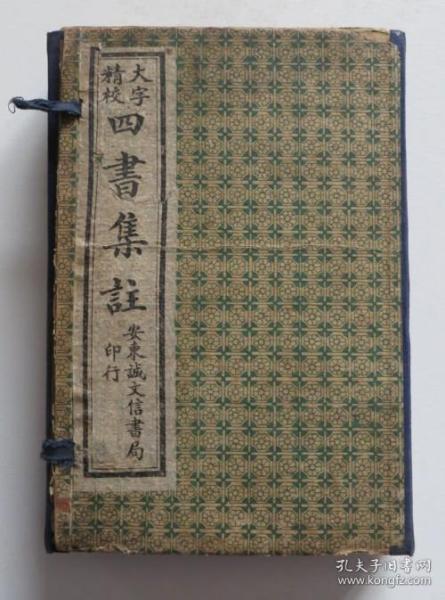 大字
精校
四書集註
安東誠文信書局
印行
孔夫子旧书网
www.kongfz.com